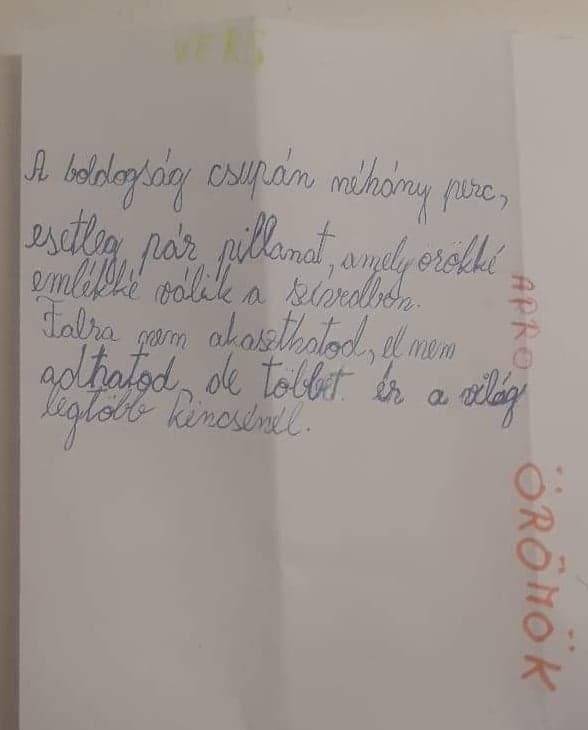 VERS
A boldogság csupán néhány perc,
esetleg pár pillanat, amely örökké
emlékké válik a szívedben.
Falra nem akaszthatod, el nem
adhatod, de többet ér a világ
legtöbb kincsénél.
APRÓ ÖRÖMÖK